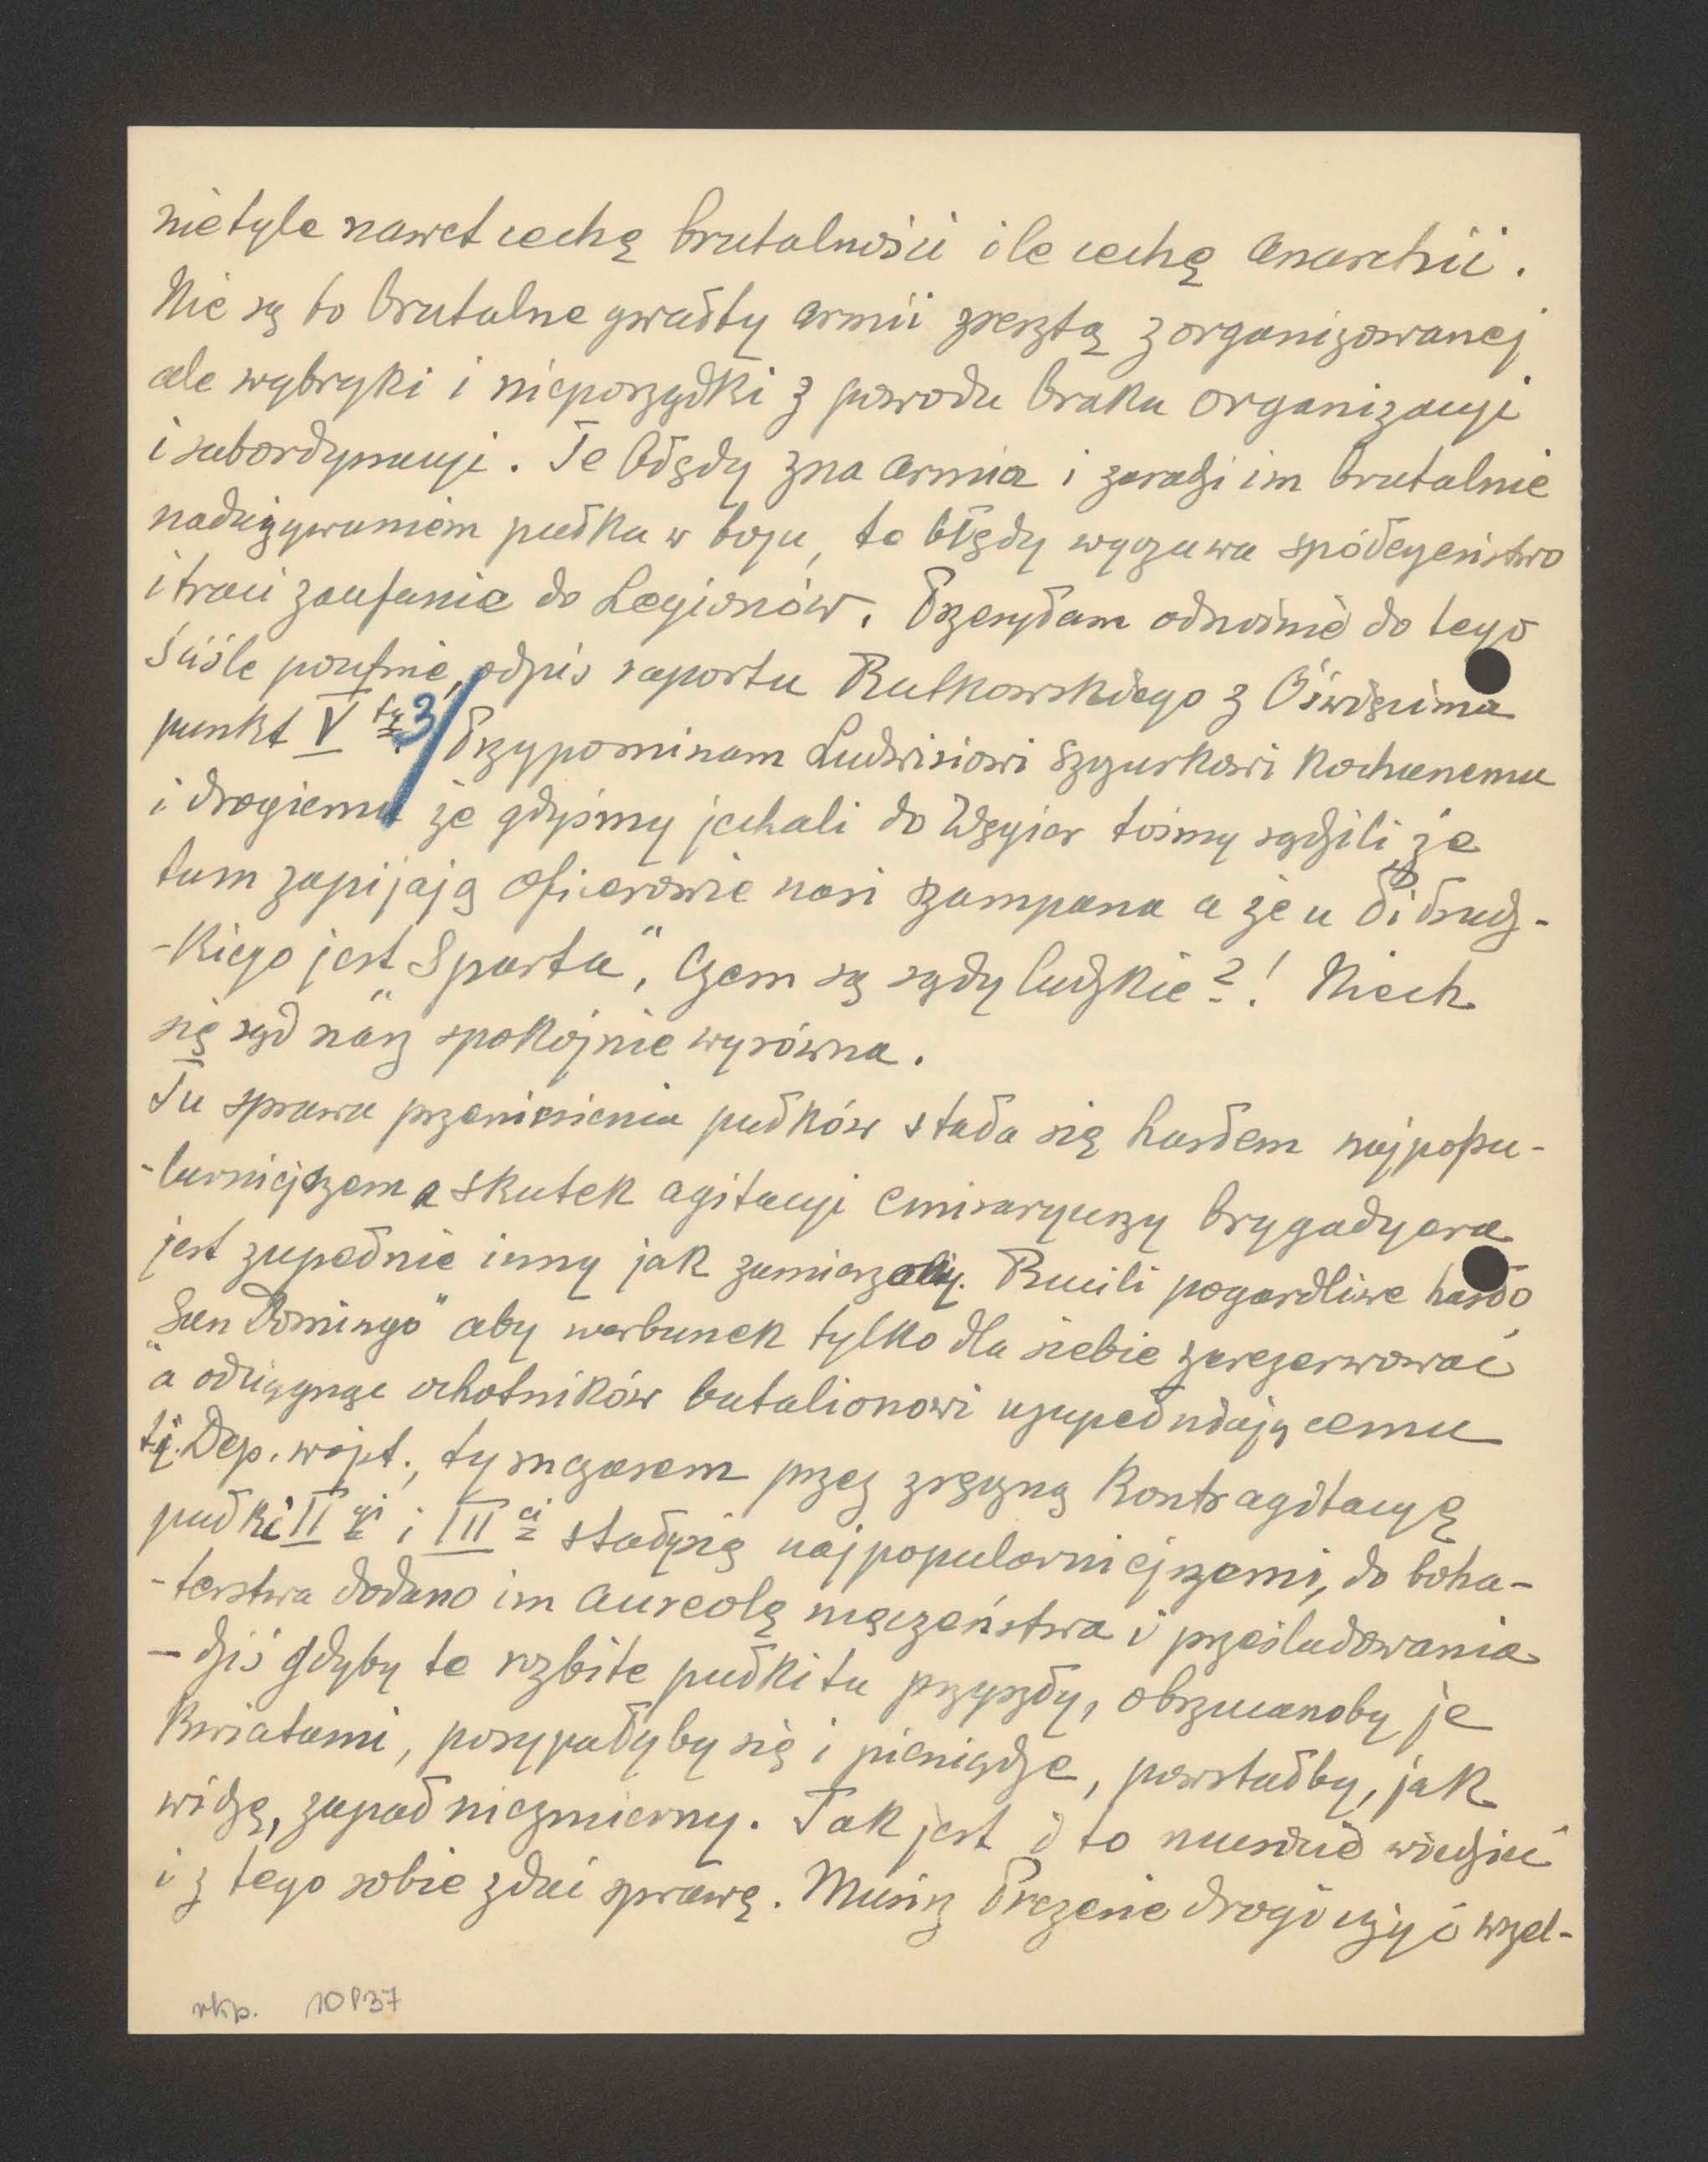 nietyle nawet cechę brutalności ile cechę anarchii.
Nie są to brutalne gwałty armii zresztą zorganizowanej
ale wybryki i nieporządki z powodu braku organizacyi
i subordynacyi. Te błędy zna armia i zaradzi im brutalnie
nadużywaniem pułku w boju, te błędy wyczuwa społeczeństwo
i traci zaufanie do Legionów. Przesyłam odnośnie do tego
ściśle poufnie, odpis raportu Rutkowskiego z Oświęcima
punkt V ty. 3/ Przypominam Ludwisiowi Szczurkowi kochanemu
i drogiemu że gdyśmy jechali do Węgier tośmy sądzili że
tam zapijają oficerowie nasi szampana a że u Piłsudz-
-kiego jest „Sparta". Czem są sądy ludzkie?! Niech
się sąd nasz spokojnie wyrówna.
Tu sprawa przeniesienia pułków stała się hasłem najpopu-
-larniejszem a skutek agitacyi emisaryuszy brygadyera
jest zupełnie inny jak zamierzały. Rzucili pogardliwe hasło
„San Domingo" aby werbunek tylko dla siebie zarezerwować
a odciągnąć ochotników batalionowi uzupełniającemu
tj. Dep. wojsk., tymczasem przez zręczną kontragitacyę
pułki II gi i III ci stały się najpopularniejszemi, do boha-
-terstwa dodano im aureolę męczeństwa i prześladowania
- dziś gdyby te rozbite pułki tu przyszły, obrzucanoby je
kwiatami, posypałyby się i pieniądze, powstałby, jak
widzę, zapał niezmierny. Tak jest i to musicie wiedzieć
i z tego sobie zdać sprawę. Musisz Prezesie drogi użyć wszel-
rkp. 10837